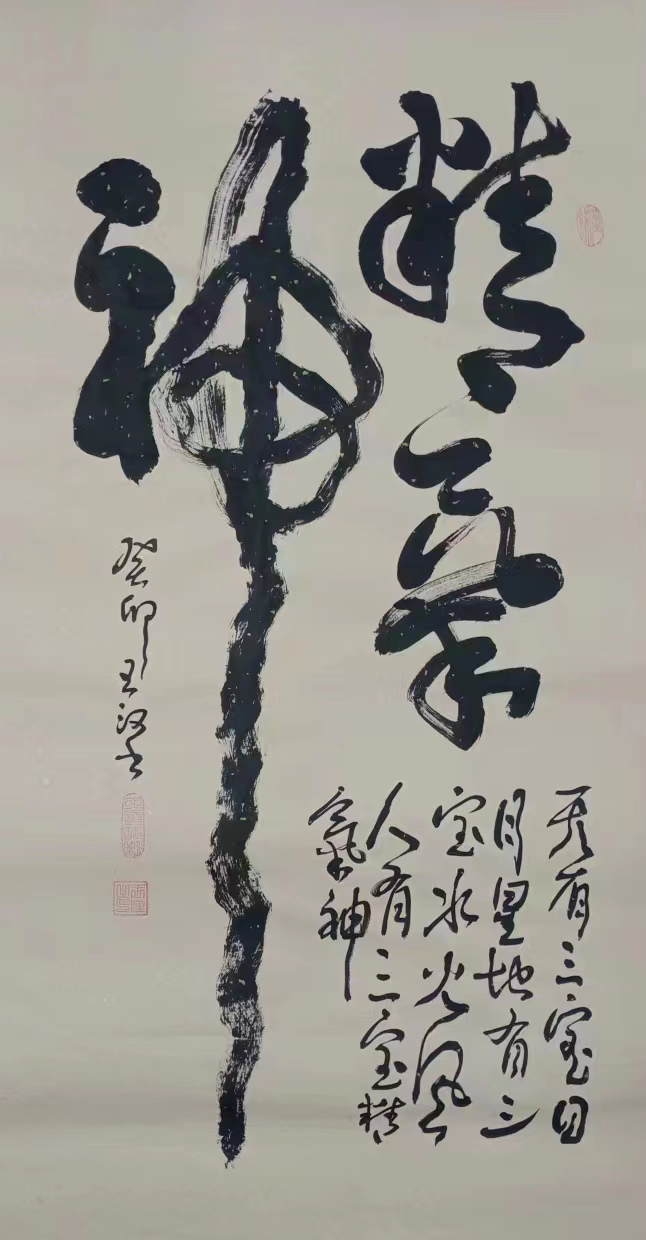 精氣
神
天有三宝日
月星地有三
宝水火風
人有三宝精
氣神
癸卯王